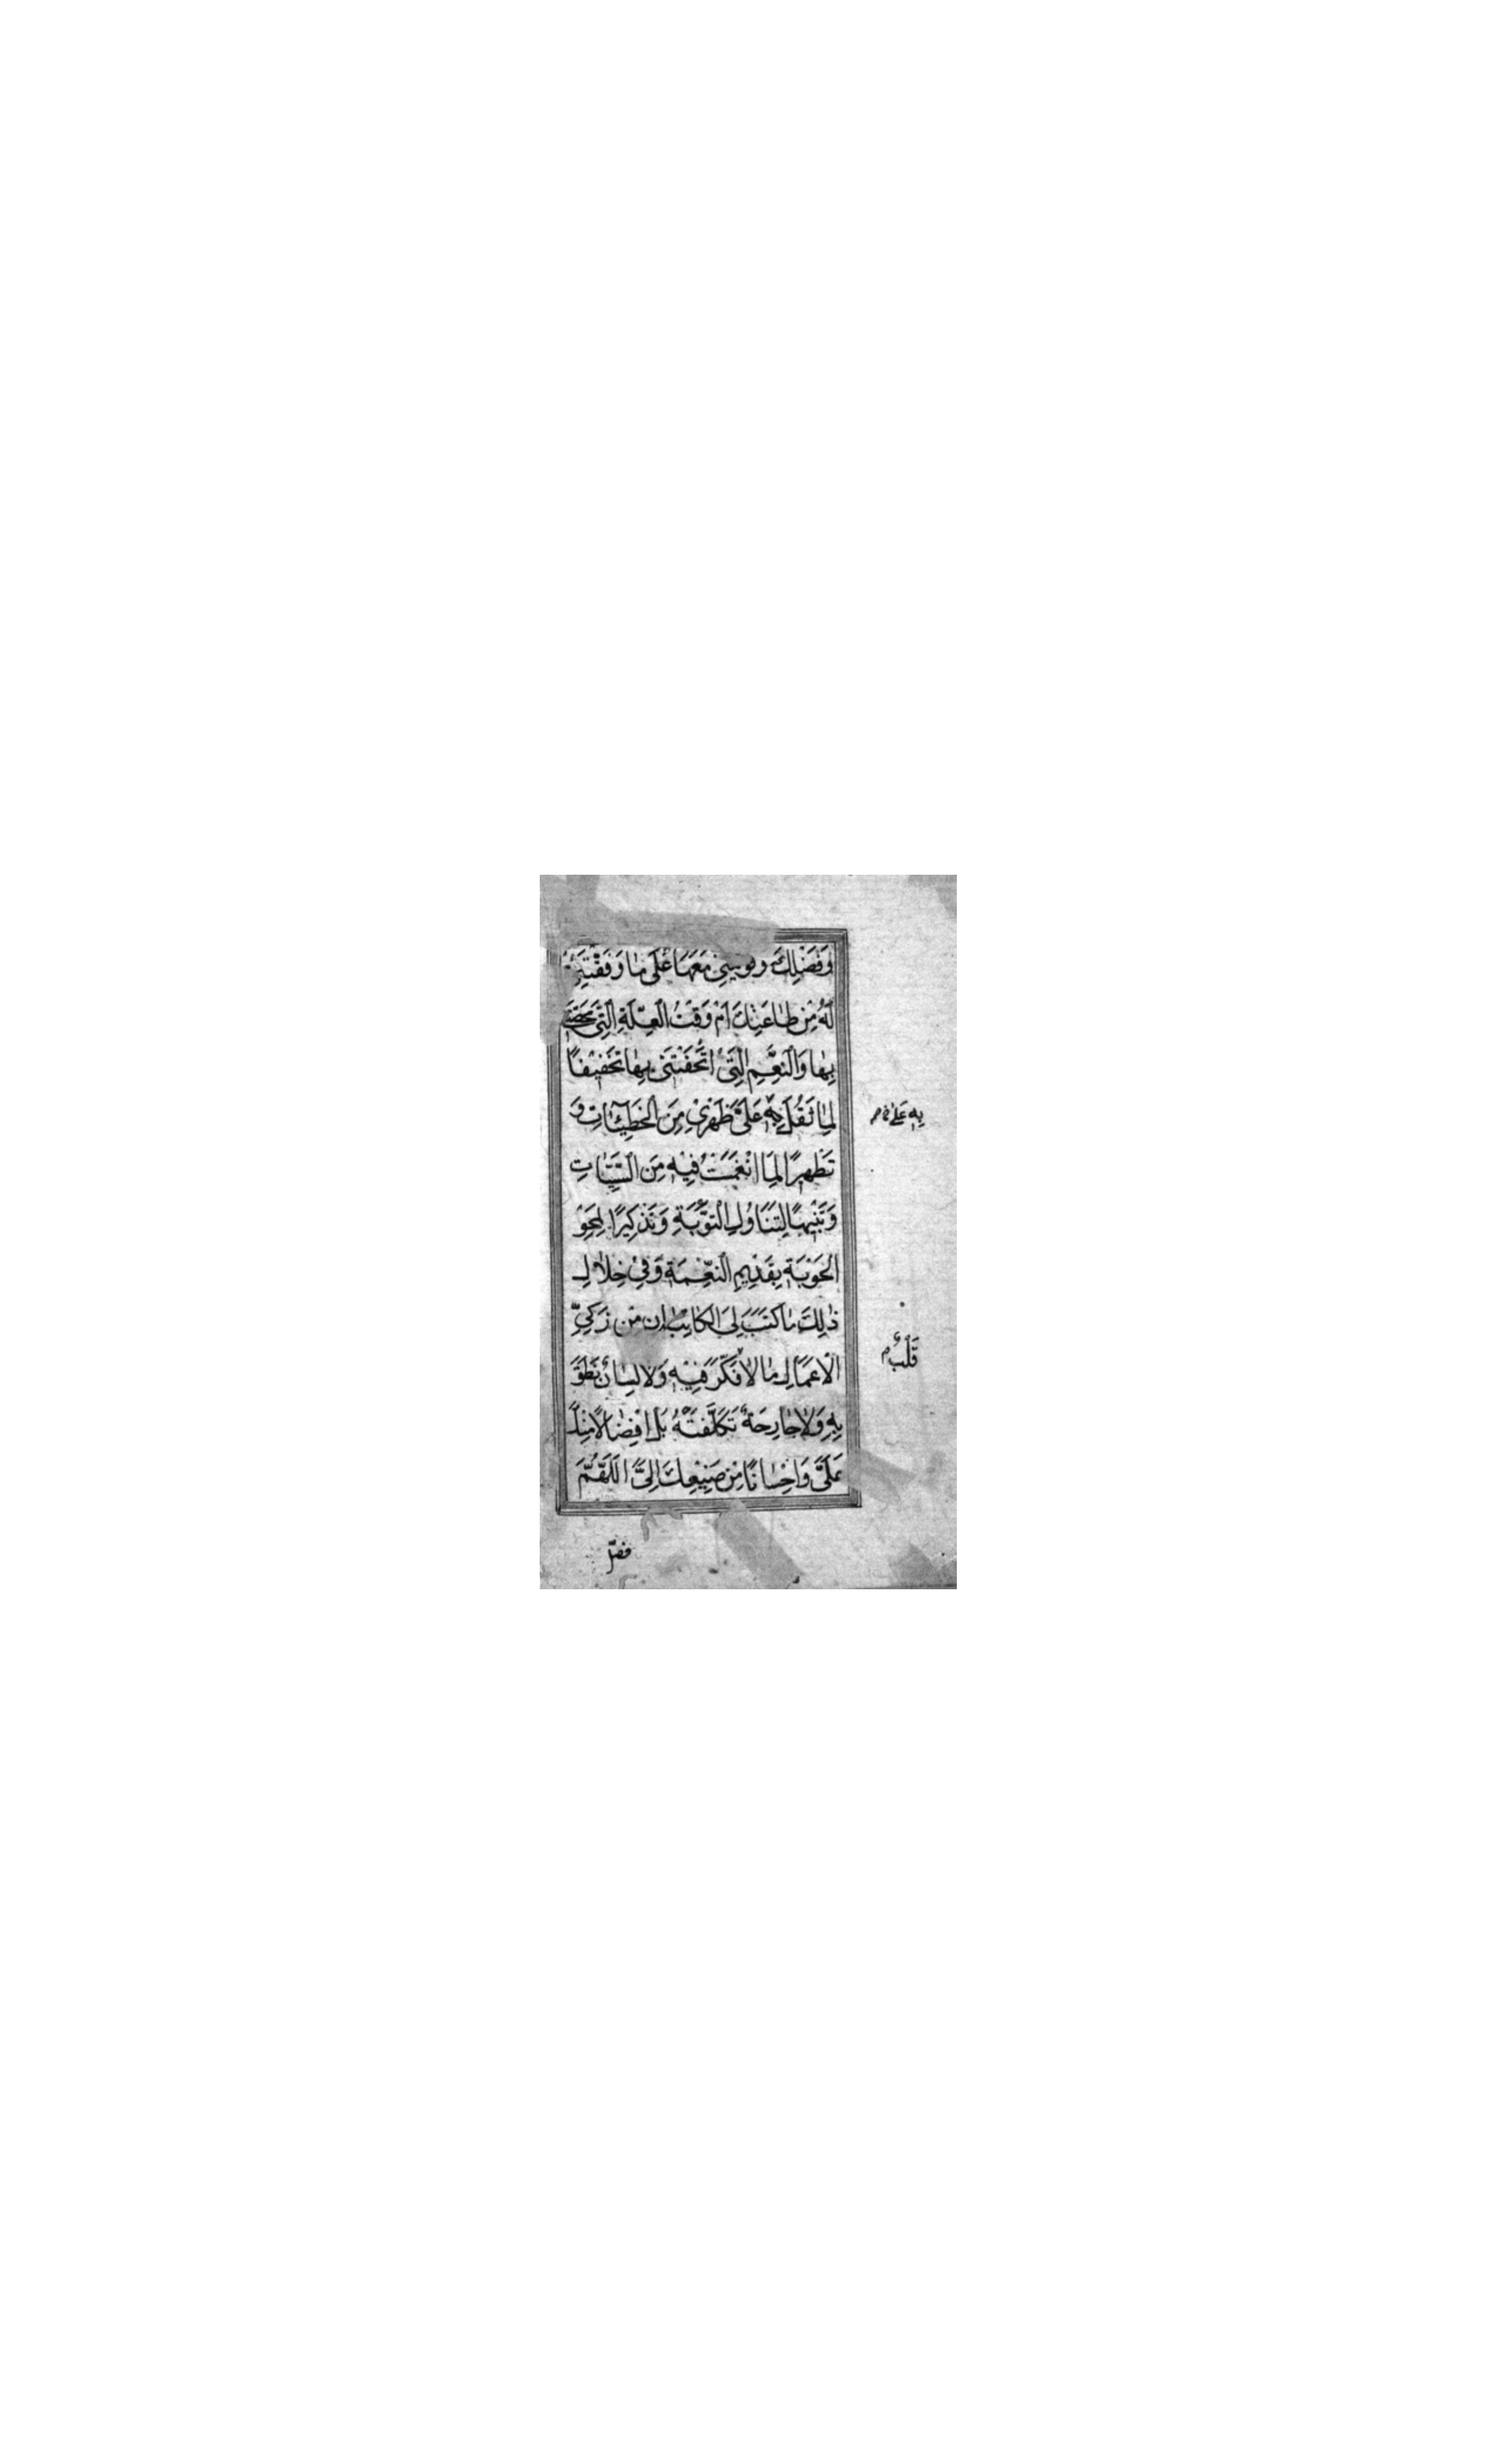 وَفَضْلِكَ وَقَوَّيْتَنِي مَعَهَا عَلَى مَا وَفَّقْتَنِي
لَهُ مِنْ طَاعَتِكَ اَمْ وَقْتُ الْعِلَّةِ الَّتِي مَحَّصْتَنِي
بِهَا وَالنِّعَمِ الَّتِي اَتْحَفْتَنِي بِهَا تَخْفِيْفًا
لِمَا ثَقُلَ بِهِ عَلَيَّ ظَهْرِيْ مِنَ الْخَطِيْئَاتِ وَ
بِهِ عَلَى
تَطْهِيْرًا لِمَا انْغَمَسْتُ فِيْهِ مِنَ السَّيِّئَاتِ
وَتَنْبِيْهًا لِتَنَاوُلِ التَّوْبَةِ وَتَذْكِيْرًا لِمَحْوِ
الْحَوْبَةِ بِقَدِيْمِ النِّعْمَةِ وَفِيْ خِلَالِ
ذٰلِكَ مَا كَتَبَ لِيَ الْكَاتِبَانِ مِنْ زَكِيِّ
الْاَعْمَالِ مَا لَا فَكَّرَ فِيْهِ وَلَا لِسَانٌ نَطَقَ
قَلْبٌ
بِهِ وَلَا جَارِحَةٌ تَكَلَّفَتْهُ بَلْ اِفْضَالًا مِنْكَ
عَلَيَّ وَاِحْسَانًا مِنْ صَنِيْعِكَ اِلَيَّ اَللّٰهُمَّ
فصلّ